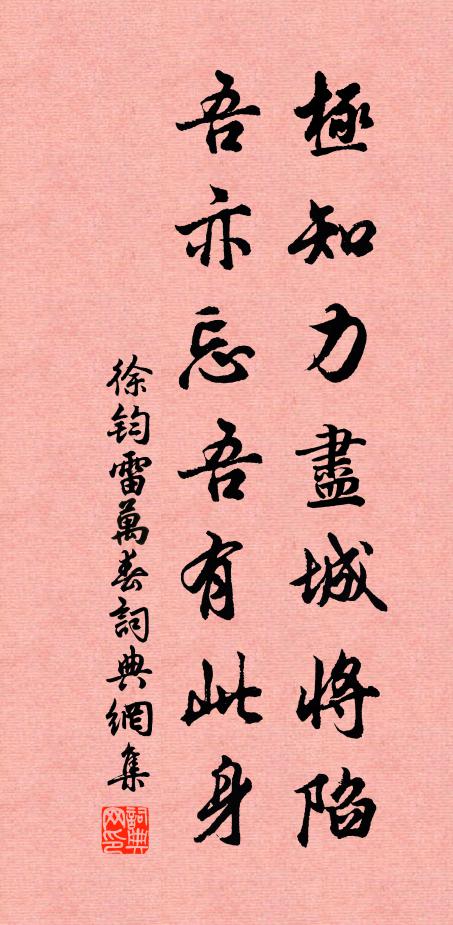 極知力盡城將陷
吾亦忘吾有此身
徐鈞雷萬春詞典網集
詞典網印